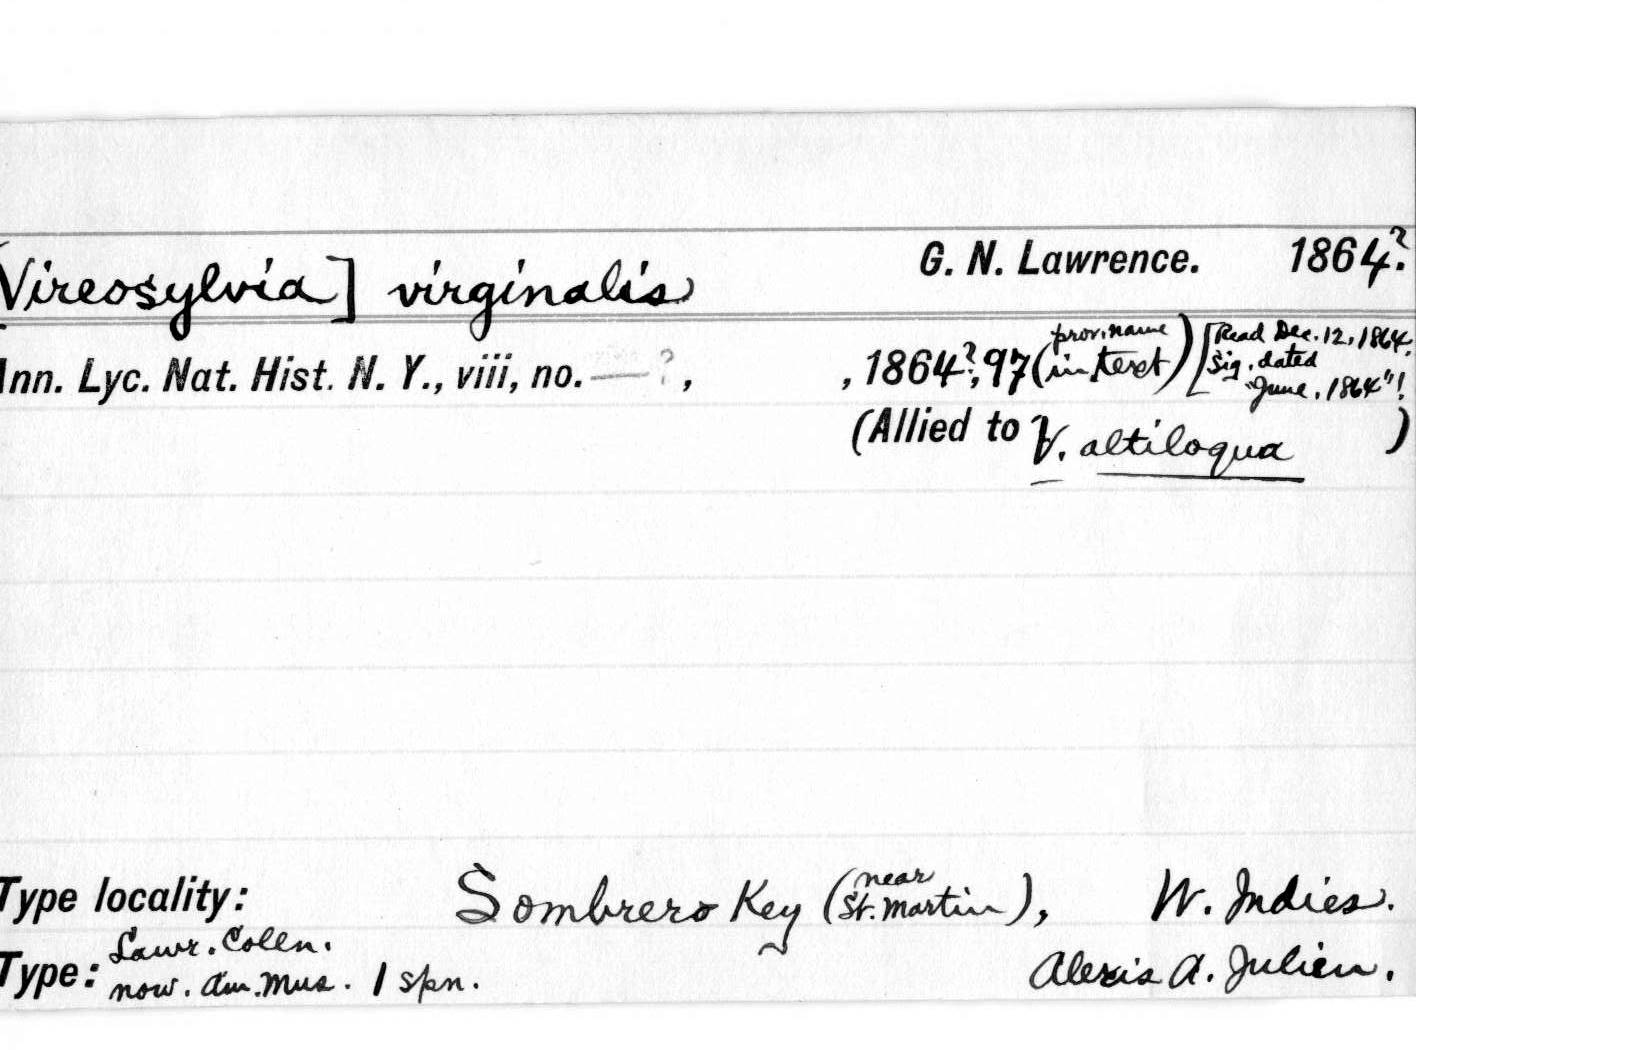 [Vireosylvia] virginalis G. N. Lawrence. 1864?.
Ann. Lyc. Nat. Hist. N. Y., viii, no. —?, , 1864?, 97 (prov. name in text) [Read Dec. 12, 1864.
Sig. dated
"June, 1864"!
(Allied to V. altiloqua )
Type locality: Sombrero Key (near St. Martin), W. Indies.
Type: Lawr. Colln.
now. Am. Mus. 1 spn. Alexis A. Julien.